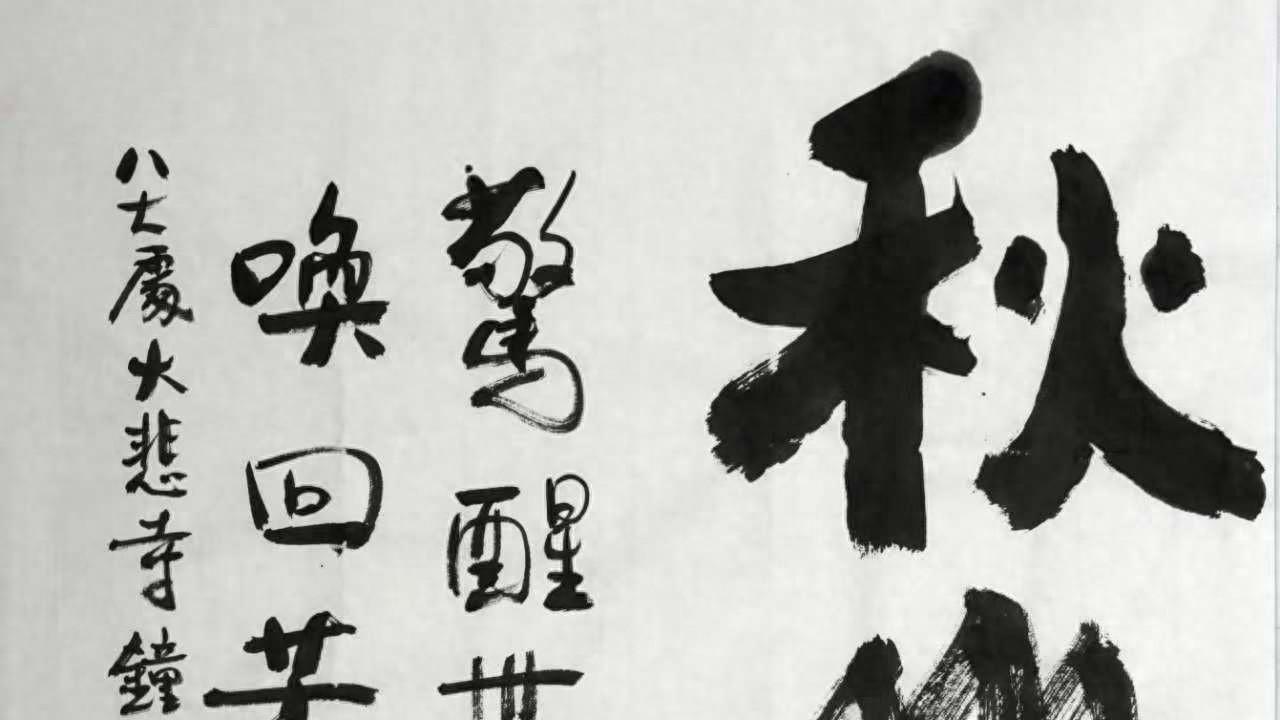 秋
驚醒世
喚回苦
八大處大悲寺鐘